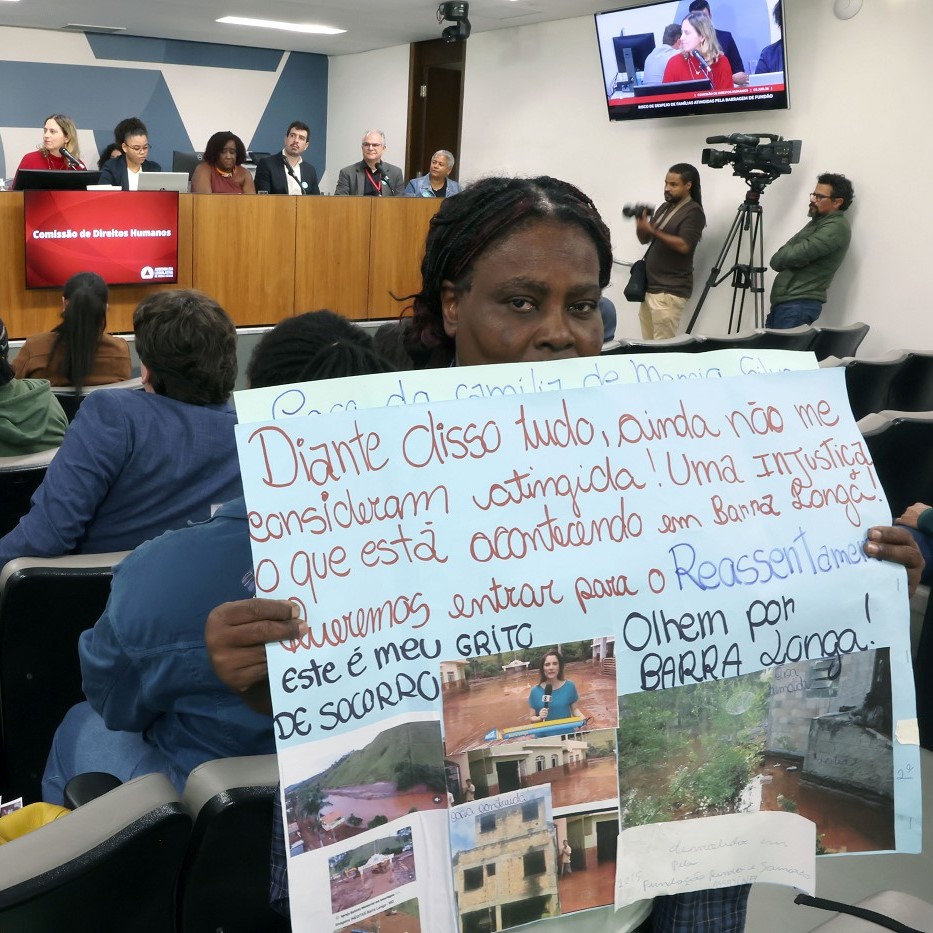 COMISSÃO DE DIREITOS HUMANOS
RISCO DE DESPEJO DE FAMÍLIAS ATINGIDAS PELA BARRAGEM DE FUNDÃO
Comissão de Direitos Humanos
Casa da família de
Diante disso tudo, ainda não me
consideram atingida! Uma INJUSTIÇA
o que está acontecendo em Barra Longa!
Queremos entrar para o Reassentamen
Este é meu GRITO
DE SOCORRO
Olhem por
BARRA Longa!
casa
2ª
demolida em
2015 pela
Fundação Renova